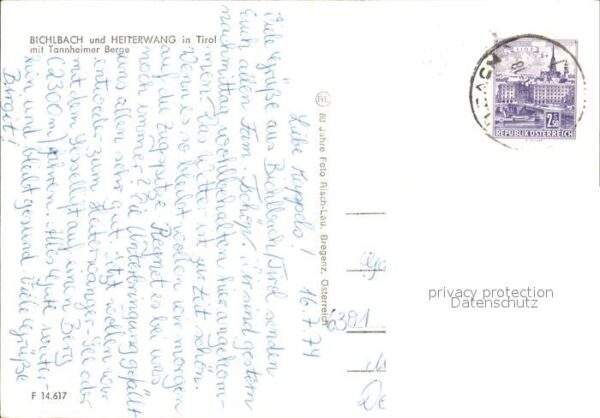 BICHLBACH und HEITERWANG in Tirol
mit Tannheimer Berge
16.7.74
Liebe
Viele Grüße aus Bichlbach/Tirol senden
Euch allen Fam. Wir sind gestern
nachmittag wohlbehalten hier angekom-
men. Das Wetter ist zur Zeit schön.
Wenn es so bleibt wollen wir morgen
auf die Zugspitze. Regnet es bei
noch immer? Die Unterbringung gefällt
uns allen sehr gut. Jetzt wollen wir
entweder zum Heiterwanger-See oder
mit dem Sessellift auf einen Berg
(2300m) fahren. Alles Gute weiter-
hin und bleibt gesund. Viele Grüße
Birgit!
80 Jahre Foto Risch-Lau, Bregenz, Österreich
REPUBLIK ÖSTERREICH
2.50
6381
privacy protection
Datenschutz
F 14.617